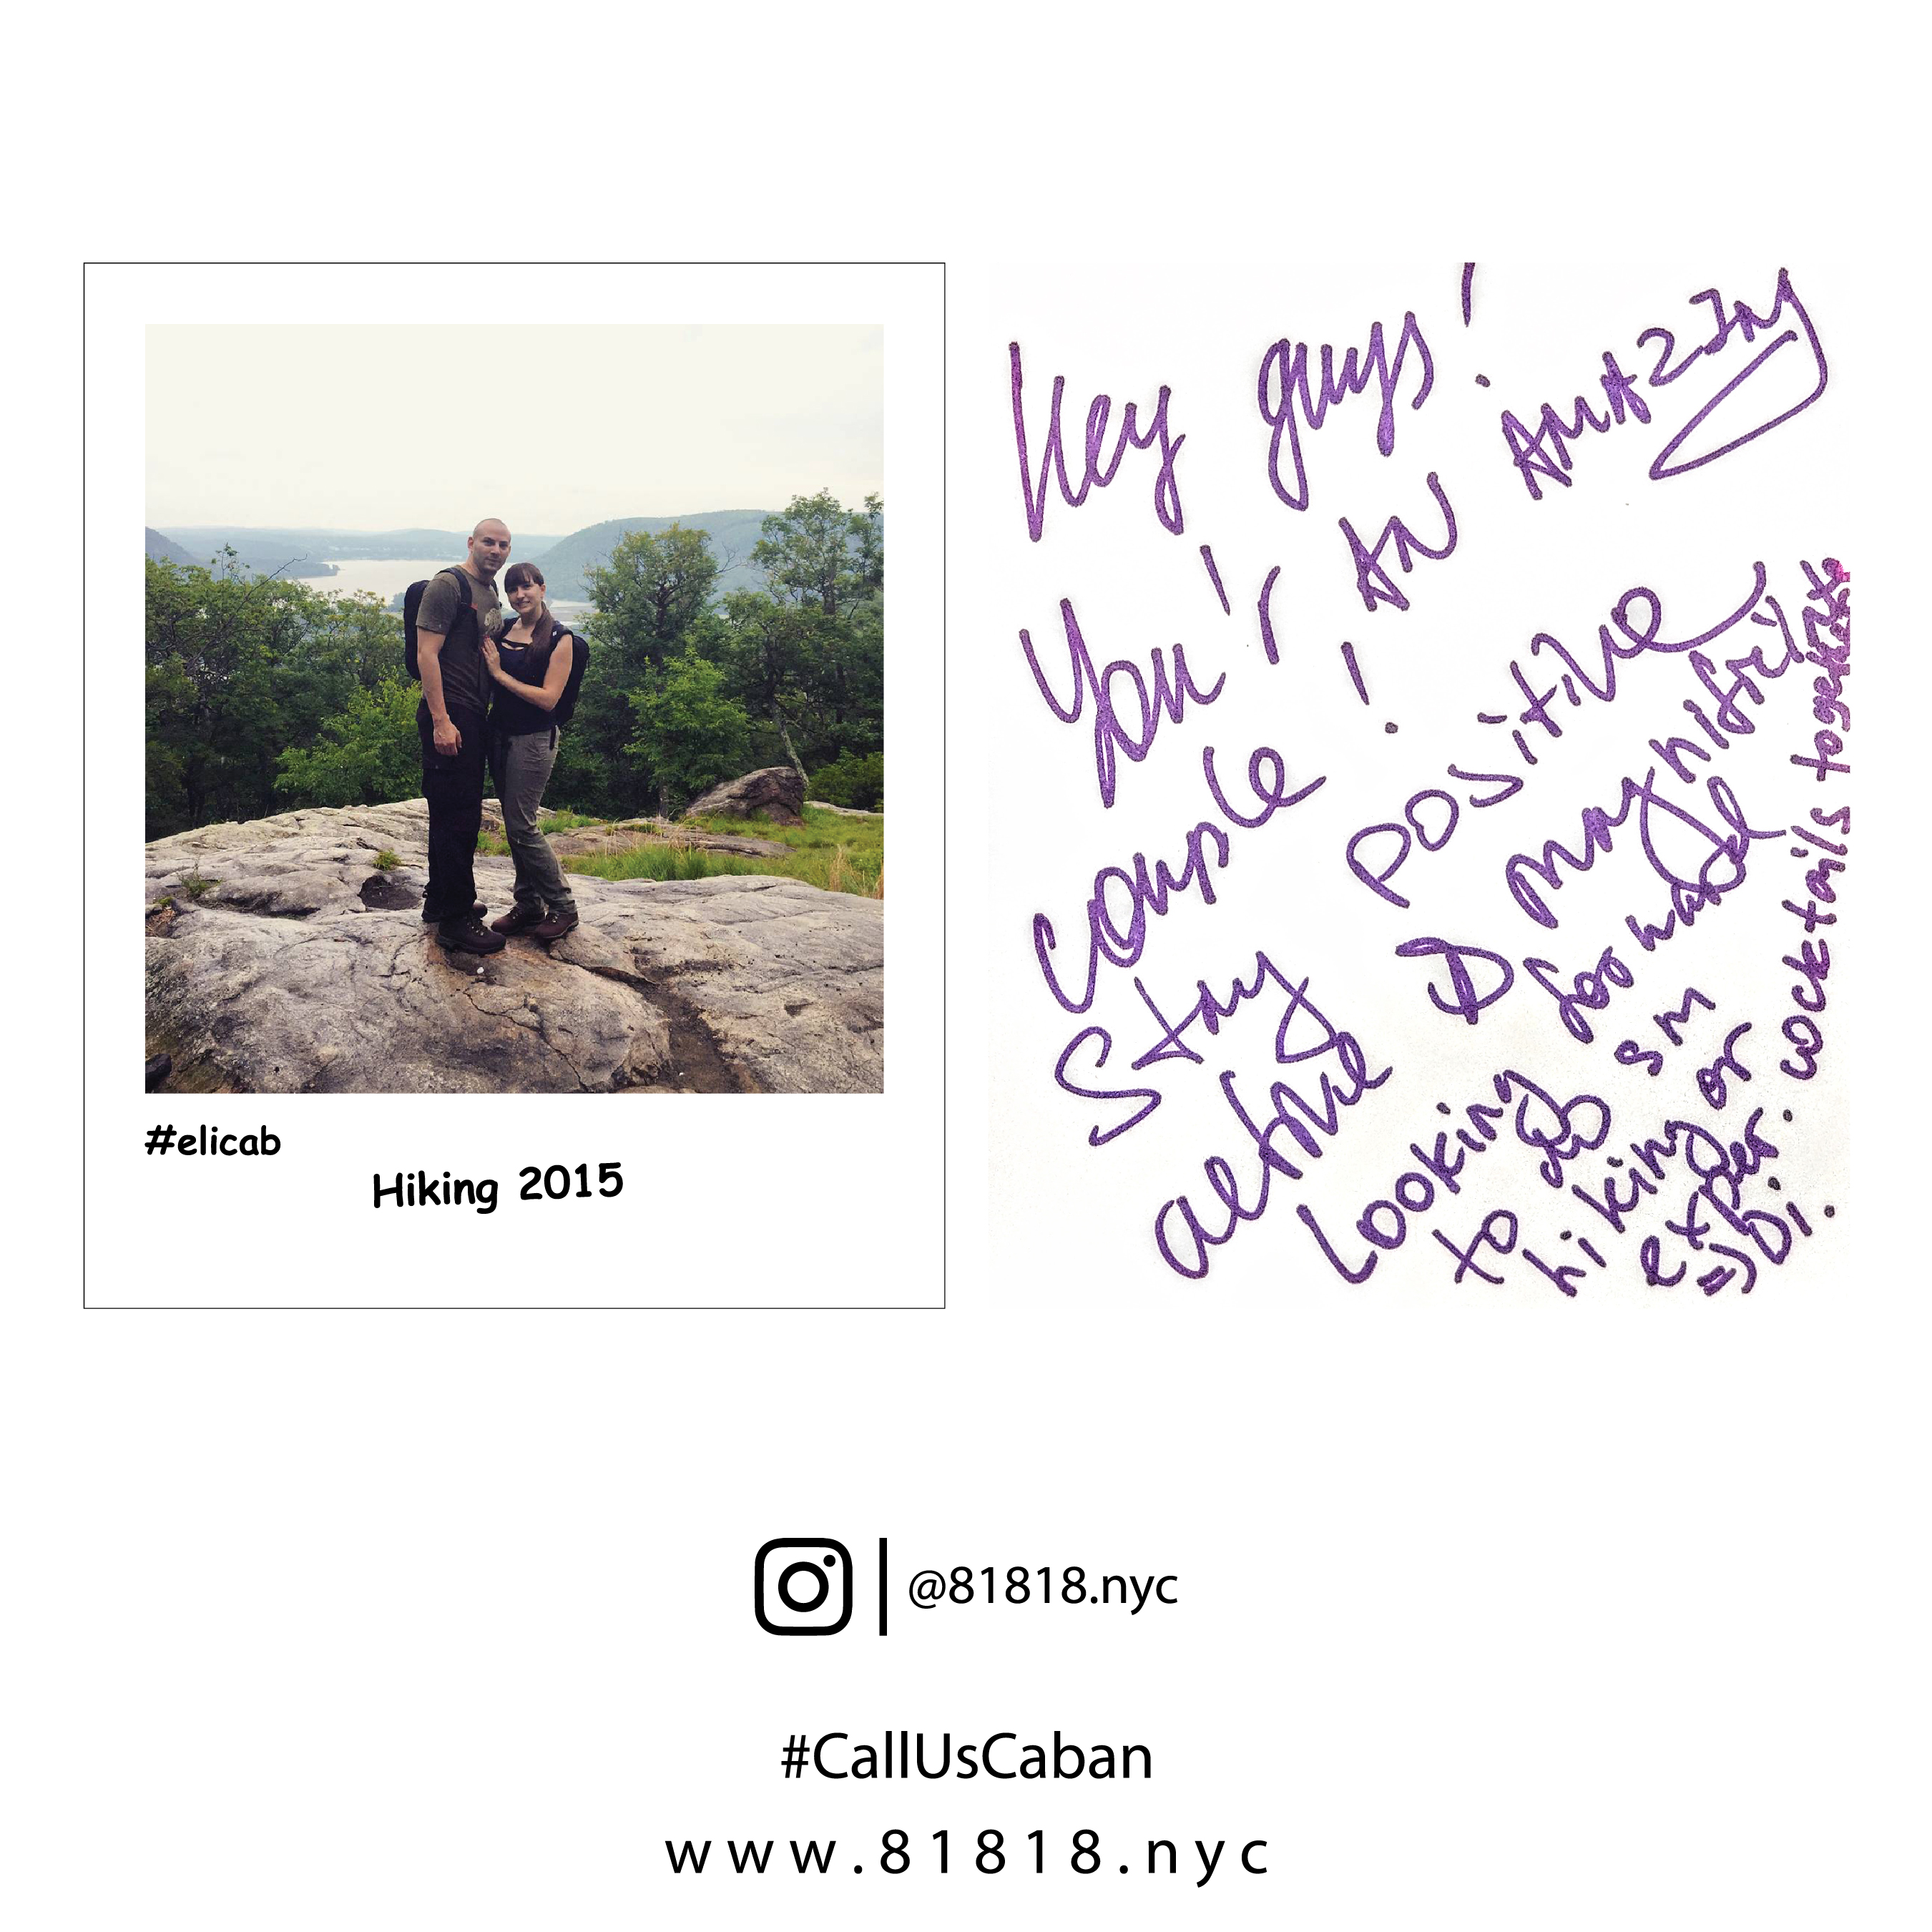 #elicab
Hiking 2015
Hey guys!
You'r AN AMAZING
couple!
Stay positive
active & magnificient
Looking forward
to do sm
hiking or
exper.
cocktails together
@81818.nyc
#CallUsCaban
www.81818.nyc